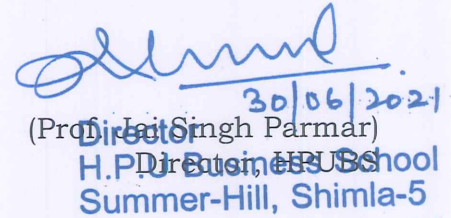 30/06/2021
(Prof. Jai Singh Parmar)
Director
Director, HPUBS
H.P.U Business School
Summer-Hill, Shimla-5